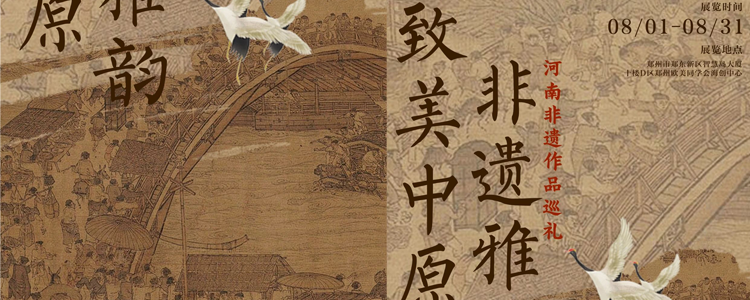 雅韵
原
展览时间
08/01-08/31
展览地点
郑州市郑东新区智慧岛大厦
十楼D区郑州欧美同学会海创中心
河南非遗作品巡礼
非遗雅
致美中原